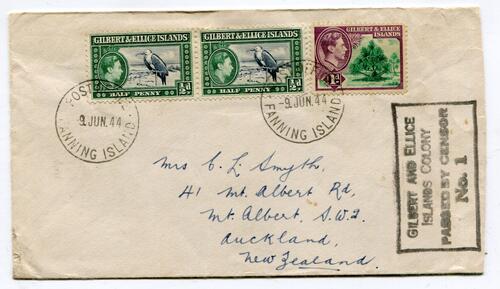 GILBERT & ELLICE ISLANDS
½d
HALF PENNY
GILBERT & ELLICE ISLANDS
½d
HALF PENNY
GILBERT & ELLICE ISLANDS
POST
-9. JUN. 44
FANNING ISLAND
POST
-9. JUN. 44
FANNING ISLAND
Mrs C. L. Smyth,
41 Mt. Albert Rd,
Mt. Albert, S.W.2.
Auckland,
New Zealand.
GILBERT AND ELLICE
ISLANDS COLONY
PASSED BY CENSOR
No. 1